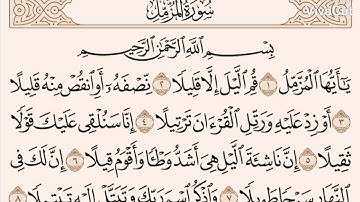 سُورَةُ الْمُزَّمِّلِ
بِسْمِ اللَّهِ الرَّحْمَٰنِ الرَّحِيمِ
يَا أَيُّهَا الْمُزَّمِّلُ ١ قُمِ اللَّيْلَ إِلَّا قَلِيلًا ٢ نِّصْفَهُ أَوِ انقُصْ مِنْهُ قَلِيلًا
٣ أَوْ زِدْ عَلَيْهِ وَرَتِّلِ الْقُرْءَانَ تَرْتِيلًا ٤ إِنَّا سَنُلْقِي عَلَيْكَ قَوْلًا
ثَقِيلًا ٥ إِنَّ نَاشِئَةَ اللَّيْلِ هِيَ أَشَدُّ وَطْئًا وَأَقْوَمُ قِيلًا ٦ إِنَّ لَكَ فِي
النَّهَارِ سَبْحًا طَوِيلًا ٧ وَاذْكُرِ اسْمَ رَبِّكَ وَتَبَتَّلْ إِلَيْهِ تَبْتِيلًا ٨